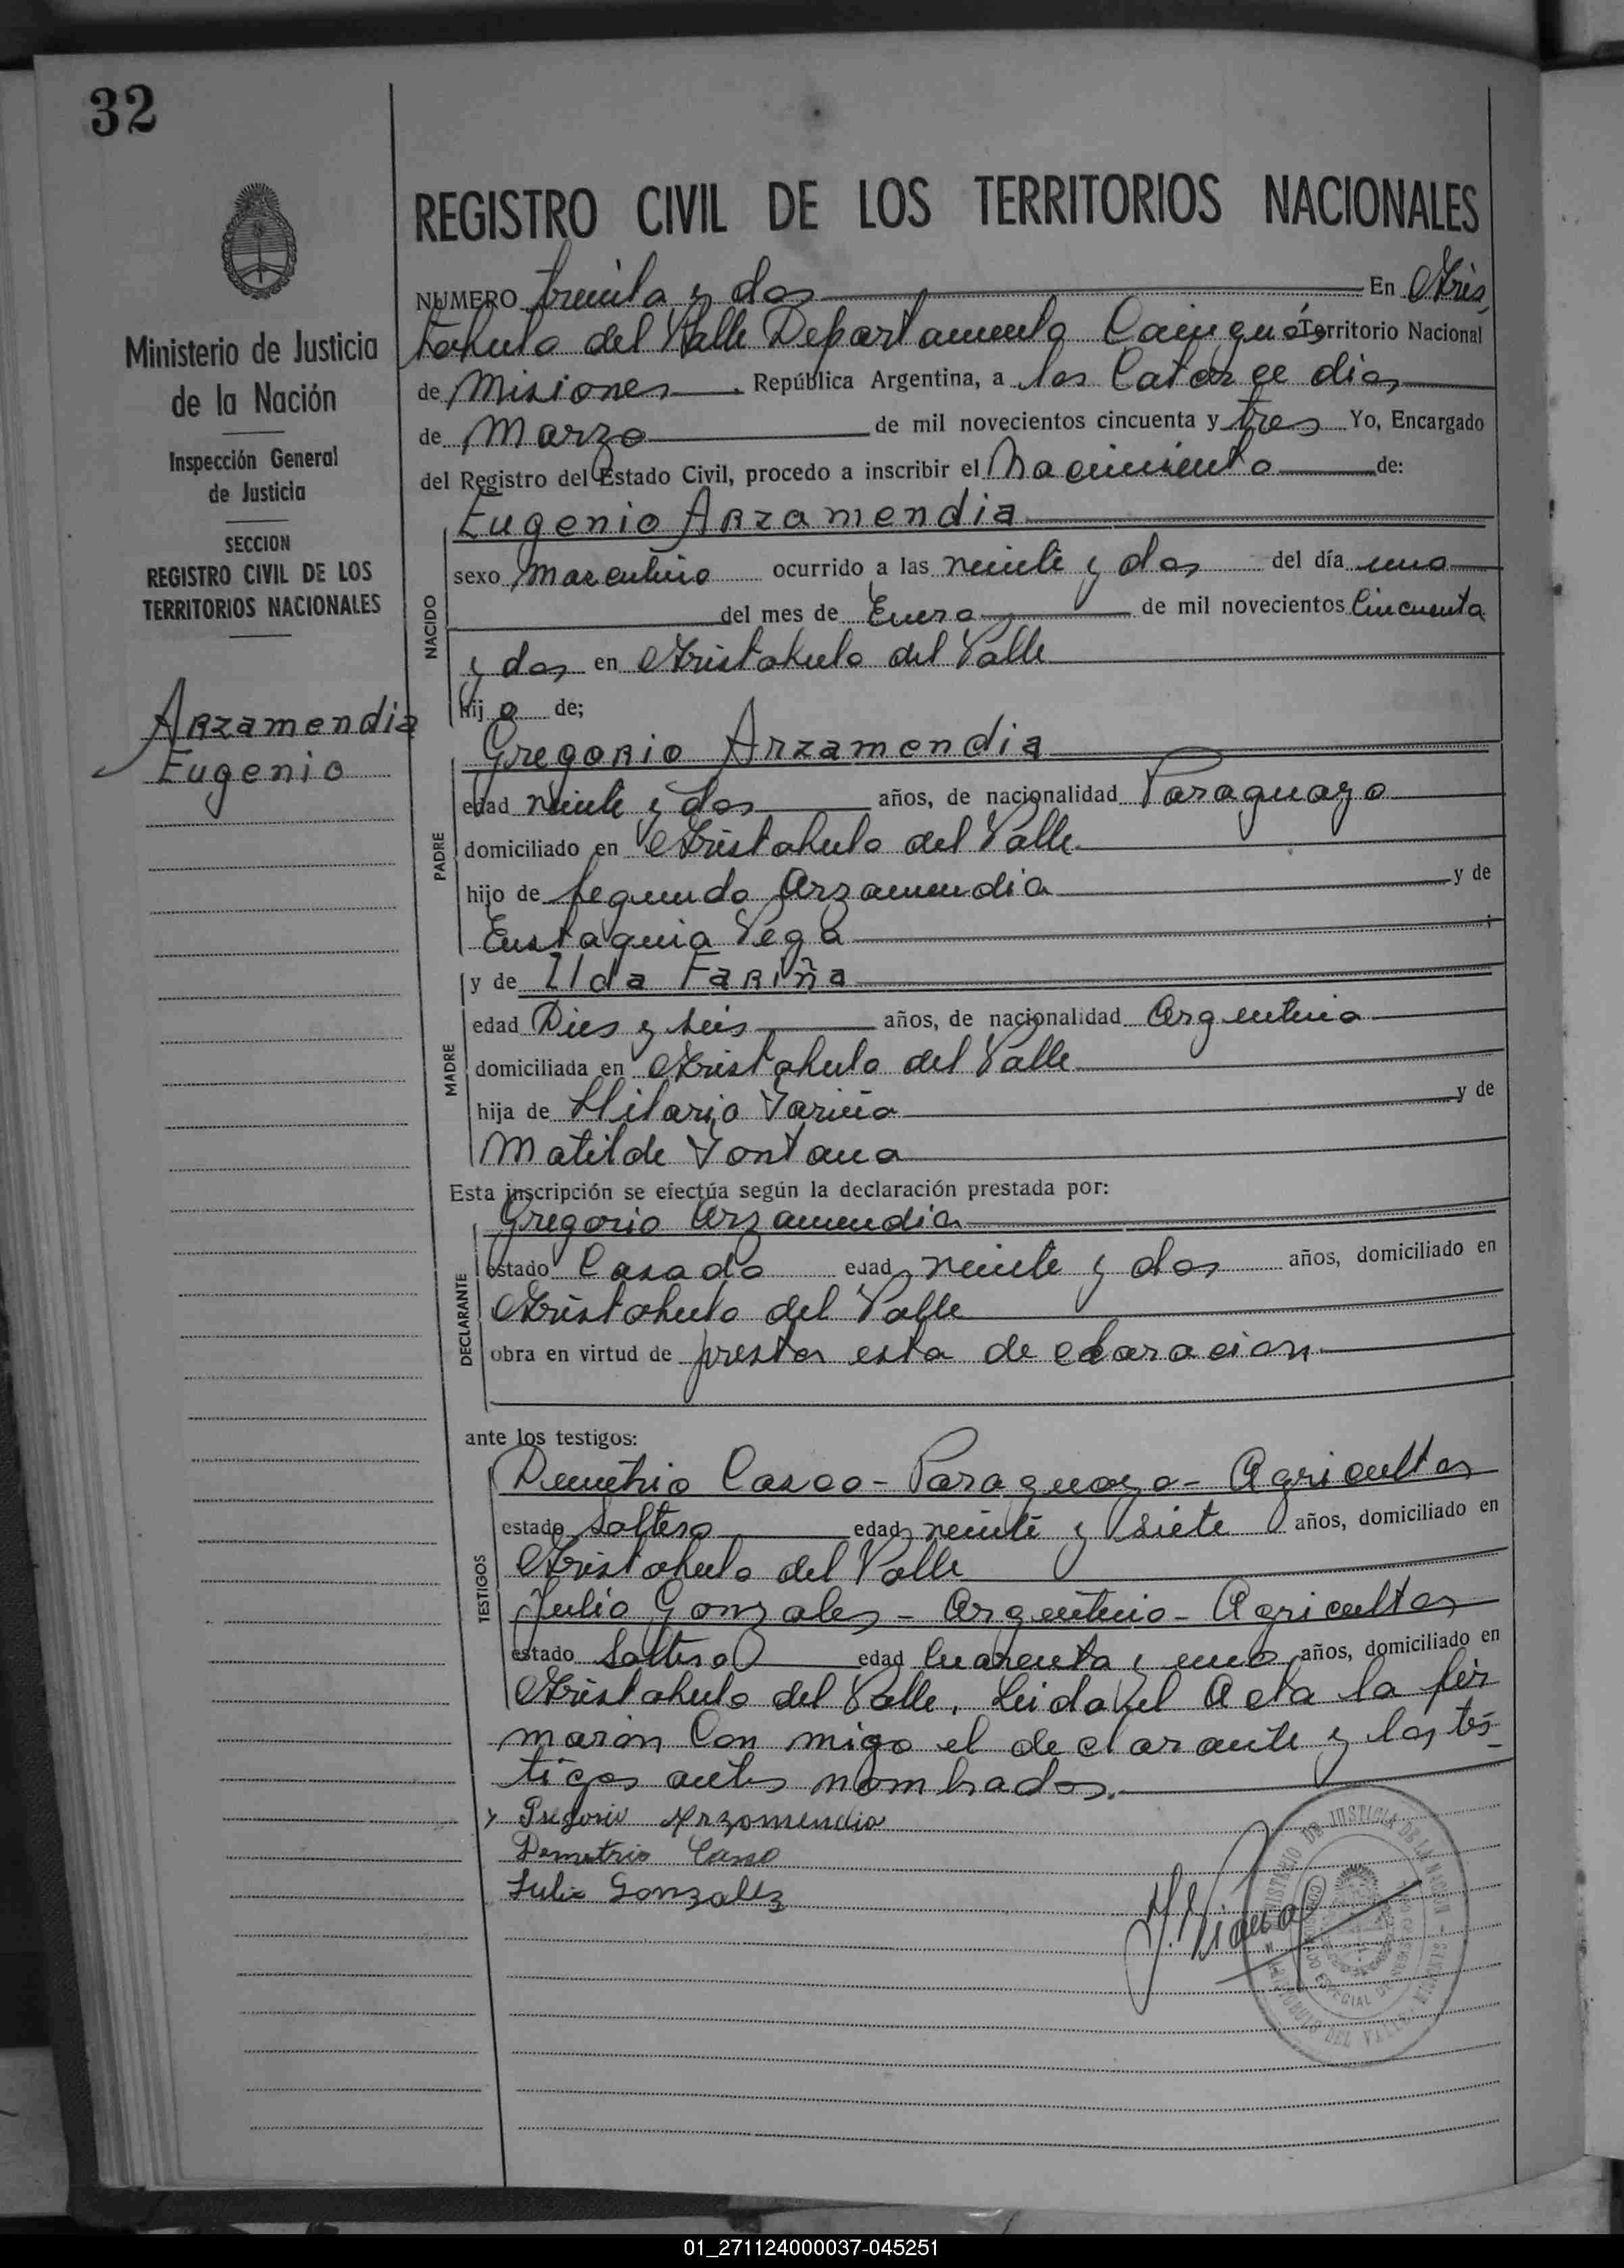 32
REGISTRO CIVIL DE LOS TERRITORIOS NACIONALES
Ministerio de Justicia
de la Nación
Inspección General
de Justicia
SECCION
REGISTRO CIVIL DE LOS
TERRITORIOS NACIONALES
Arzamendia
Eugenio
NUMERO treinta y dos En Aris
tobulo del Valle Departamento Cainguás Territorio Nacional
de Misiones República Argentina, a los Catorce dias
de Marzo de mil novecientos cincuenta y tres Yo, Encargado
del Registro del Estado Civil, procedo a inscribir el Nacimiento de:
NACIDO
Eugenio Arzamendia
sexo Masculino ocurrido a las veinte y dos del día uno
del mes de Enero de mil novecientos Cincuenta
y dos en Aristobulo del Valle
hij o de;
PADRE
Gregorio Arzamendia
edad veinte y dos años, de nacionalidad Paraguayo
domiciliado en Aristobulo del Valle
hijo de Segundo Arzamendia y de
Eustaquia Vega ;
MADRE
y de Ilda Fariña
edad Dies y seis años, de nacionalidad Argentina
domiciliada en Aristobulo del Valle
hija de Hilario Fariña y de
Matilde Fontana
Esta inscripción se efectúa según la declaración prestada por:
DECLARANTE
Gregorio Arzamendia
estado Casado edad veinte y dos años, domiciliado en
Aristobulo del Valle
obra en virtud de prestar esta declaracion
ante los testigos:
TESTIGOS
Demetrio Casco - Paraguayo - Agricultor
estado Soltero edad veinte y siete años, domiciliado en
Aristobulo del Valle
Julio Gonzales - Argentino - Agricultor
estado Soltero edad Cuarenta y uno años, domiciliado en
Aristobulo del Valle. Leida el Acta la fir
maron Con migo el declarante y los tes-
tigos antes nombrados.
Gregorio Arzomendia
Demetrio Casco
Julio Gonzalez
MINISTERIO DE JUSTICIA DE LA NACION
ARISTOBULO DEL VALLE - MISIONES
01_271124000037-045251